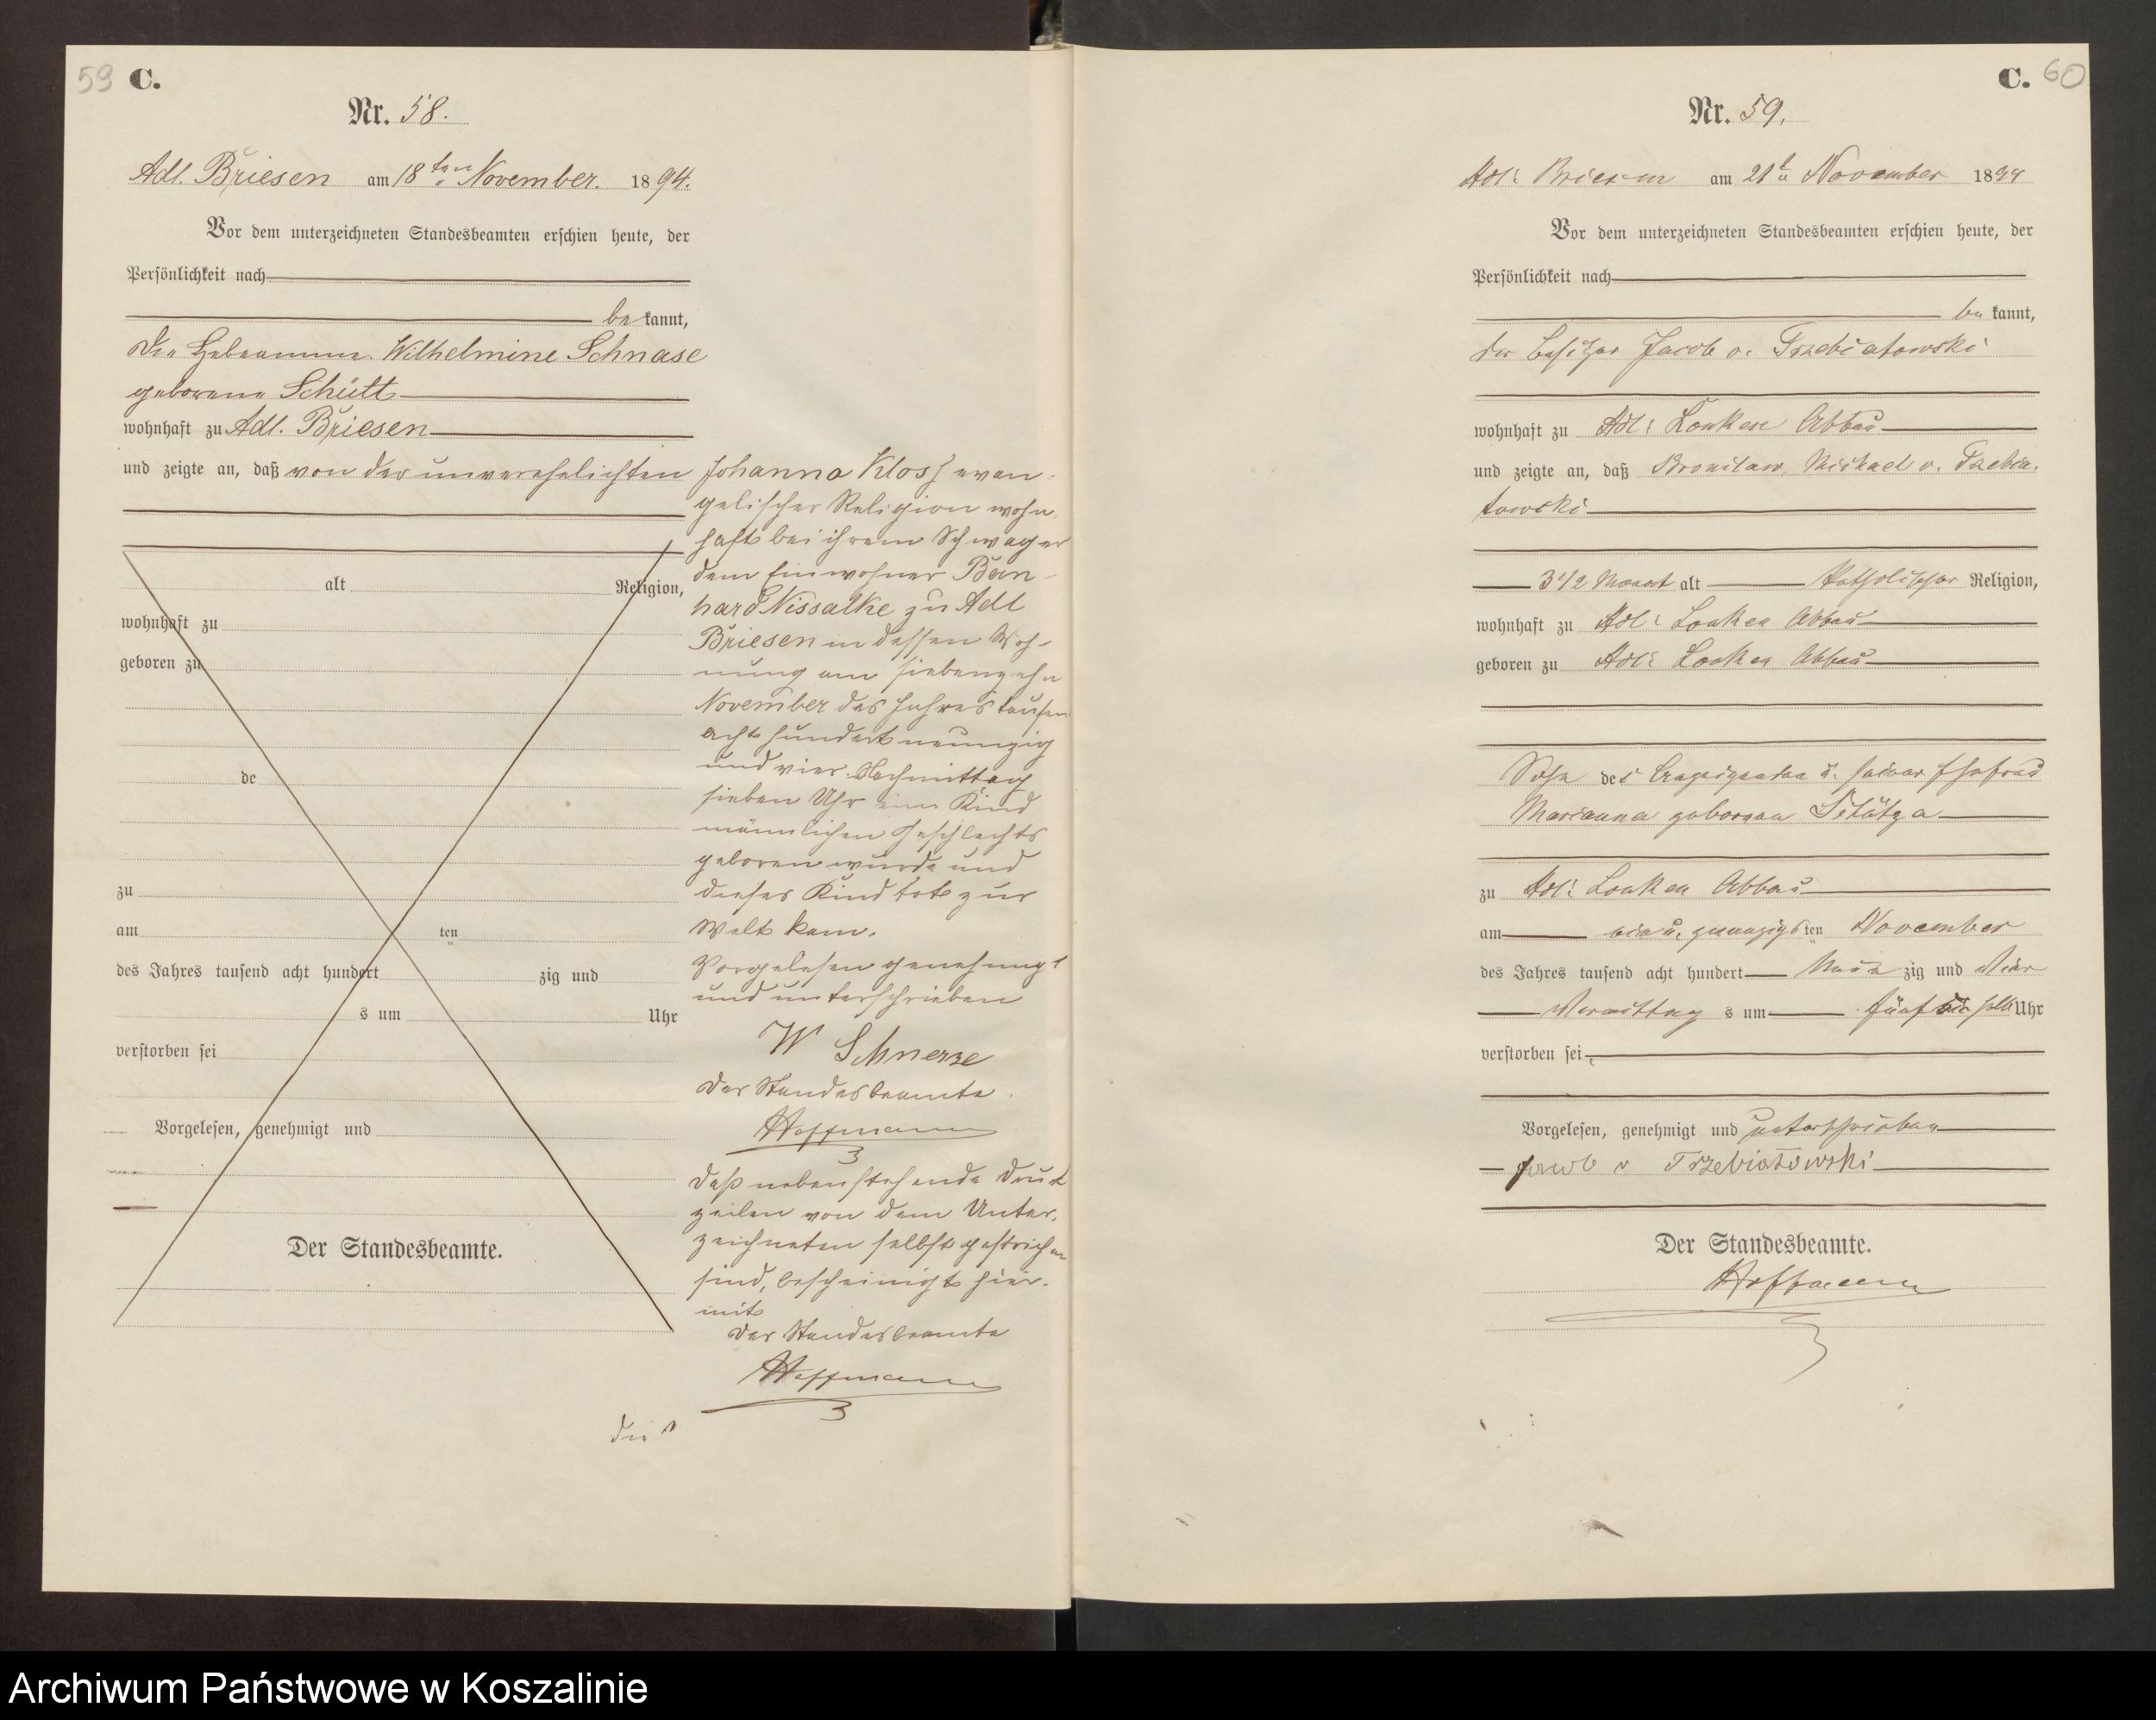 59 C.
Nr. 58.
Adl. Briesen am 18ten November. 1894.
Vor dem unterzeichneten Standesbeamten erschien heute, der
Persönlichkeit nach
be kannt,
die Hebeamme Wilhelmine Schnase
geborene Schütt
wohnhaft zu Adl. Briesen
und zeigte an, daß von der unverehelichten
alt Religion,
wohnhaft zu
geboren zu
de
zu
am ten
des Jahres tausend acht hundert zig und
s um Uhr
verstorben sei
Vorgelesen, genehmigt und
Der Standesbeamte.
Johanna Kloss evan-
gelischer Religion wohn
haft bei ihrem Schwager
dem Einwohner
Nissalke zu Adl
Briesen in dessen Woh-
nung am siebenzehn
November des Jahres tausen
acht hundert neunzig
und vier Nachmittag
sieben Uhr ein Kind
männlichen Geschlechts
geboren wurde und
dieses Kind tot zur
Welt kam.
Vorgelesen genehmigt
und unterschrieben
W
Der Standesbeamte
Hoffmann
Daß nebenstehende Druck
zeilen von dem Unter-
zeichneten selbst gestrichen
sind, bescheinigt hier-
mit
Der Standesbeamte
Hoffmann
C. 60
Nr. 59.
Adl: Briesen am 21t November 1894
Vor dem unterzeichneten Standesbeamten erschien heute, der
Persönlichkeit nach
be kannt,
der Besitzer Jacob v. Trzebiatowski
wohnhaft zu Adl: Lonken Abbau
und zeigte an, daß Bronislaw Michael v. Trzebia-
towski
3 1/2 Monat alt Katholischer Religion,
wohnhaft zu Adl: Lonken Abbau
geboren zu Adl: Lonken Abbau
Sohn des u. seiner Ehefrau
Marianna geborenen
zu Adl: Lonken Abbau
am zwanzigsten November
des Jahres tausend acht hundert Neun zig und Vier
Vormittag s um fünf Uhr
verstorben sei
Vorgelesen, genehmigt und unterschrieben
Jacob v Trzebiatowski
Der Standesbeamte.
Hoffmann
Archiwum Państwowe w Koszalinie